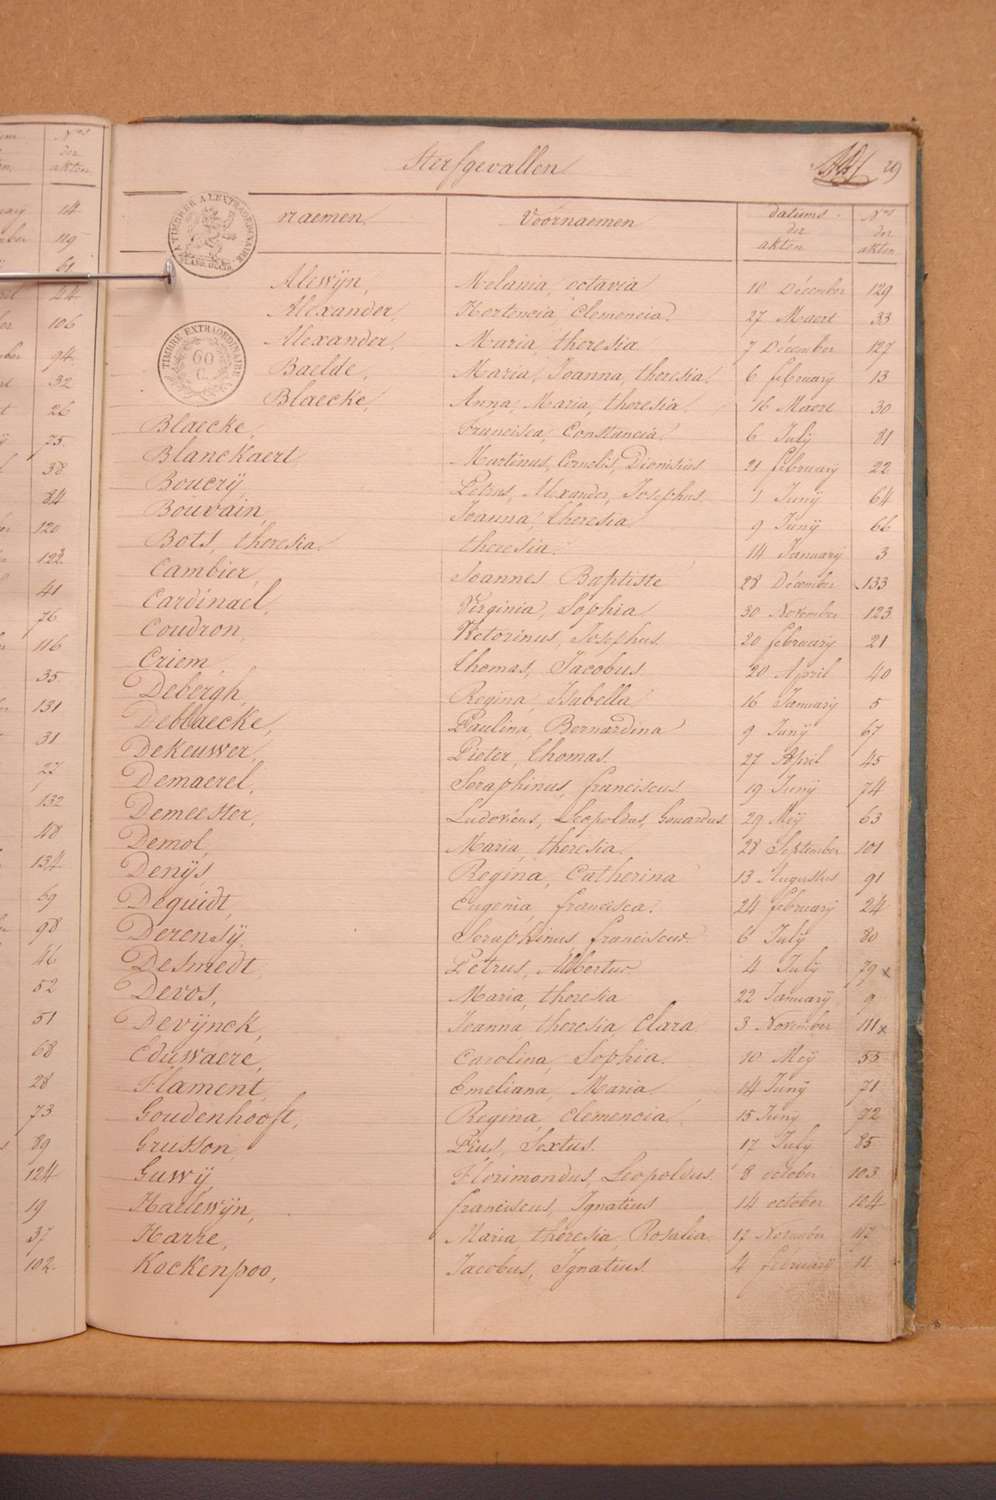 Sterfgevallen 29
naemen Voornaemen datums der akten Nos der akten
TIMBRE EXTRAORDINAIRE
60 C
Alewÿn, Melania, octavia 10 Décember 129
Alexander, Hortencia, Clemencia. 27 Maert 33
Alexander, Maria, theresia 7 Décember 127
Baelde, Maria, Joanna, theresia. 6 february 13
Blaecke, Anna, Maria, theresia. 16 Maert 30
Blaecke, Francisca, Constancia. 6 July 81
Blanckaert Martinus, Cornelis, Dionisius 21 february 22
Boucrÿ Petrus, Alexander, Josephus 1 Junÿ 64
Bouvain, Joanna, theresia 9 Junÿ 66
Bots, theresia. theresia. 14 Januarÿ 3
Cambier, Joannes Baptiste 28 Décember 133
Cardinael, Virginia, Sophia 30 November 123
Coudron, Victorinus, Josephus 20 february 21
Criem thomas, Jacobus 20 April 40
Debergh, Regina, Isabella 16 Januarÿ 5
Deblaecke, Paulina, Bernardina 9 Junÿ 67
Dekeuwer, Pieter, thomas. 27 April 45
Demaerel, Seraphinus, franciscus 19 Junÿ 74
Demeester, Ludovicus, Leopoldus, Gerardus 29 Meÿ 63
Demol, Maria, theresia. 28 September 101
Denÿs Regina, Catherina 13 Augustus 91
Dequidt, Eugenia, francisca. 24 februarÿ 24
Derensÿ, Seraphinus, franciscus 6 Julÿ 80
Desmedt Petrus, Albertus 4 Julÿ 79 x
Devos, Maria, theresia 22 Januarÿ 9
Devÿnck, Joanna, theresia, Clara. 3 November 111 x
Eduwaere, Carolina, Sophia. 10 Meÿ 55
Flament, Emeliana, Maria 14 Junÿ 71
Goudenhooft, Regina, Clemencia. 15 Junÿ 72
Grusson, Pius, Sextus. 17 July 85
Guwÿ Florimondus, Leopoldus. 8 october 103
Haelewÿn, franciscus, Ignatius 14 october 104
Harre, Maria, theresia, Rosalia. 17 November 117
Kockenpoo, Jacobus, Ignatius 4 februarÿ 11
Nos der akten
14
119
61
24
106
94
32
26
75
38
84
120
122
41
76
116
35
131
31
27
132
48
134
69
98
46
52
51
68
28
73
89
124
19
37
102